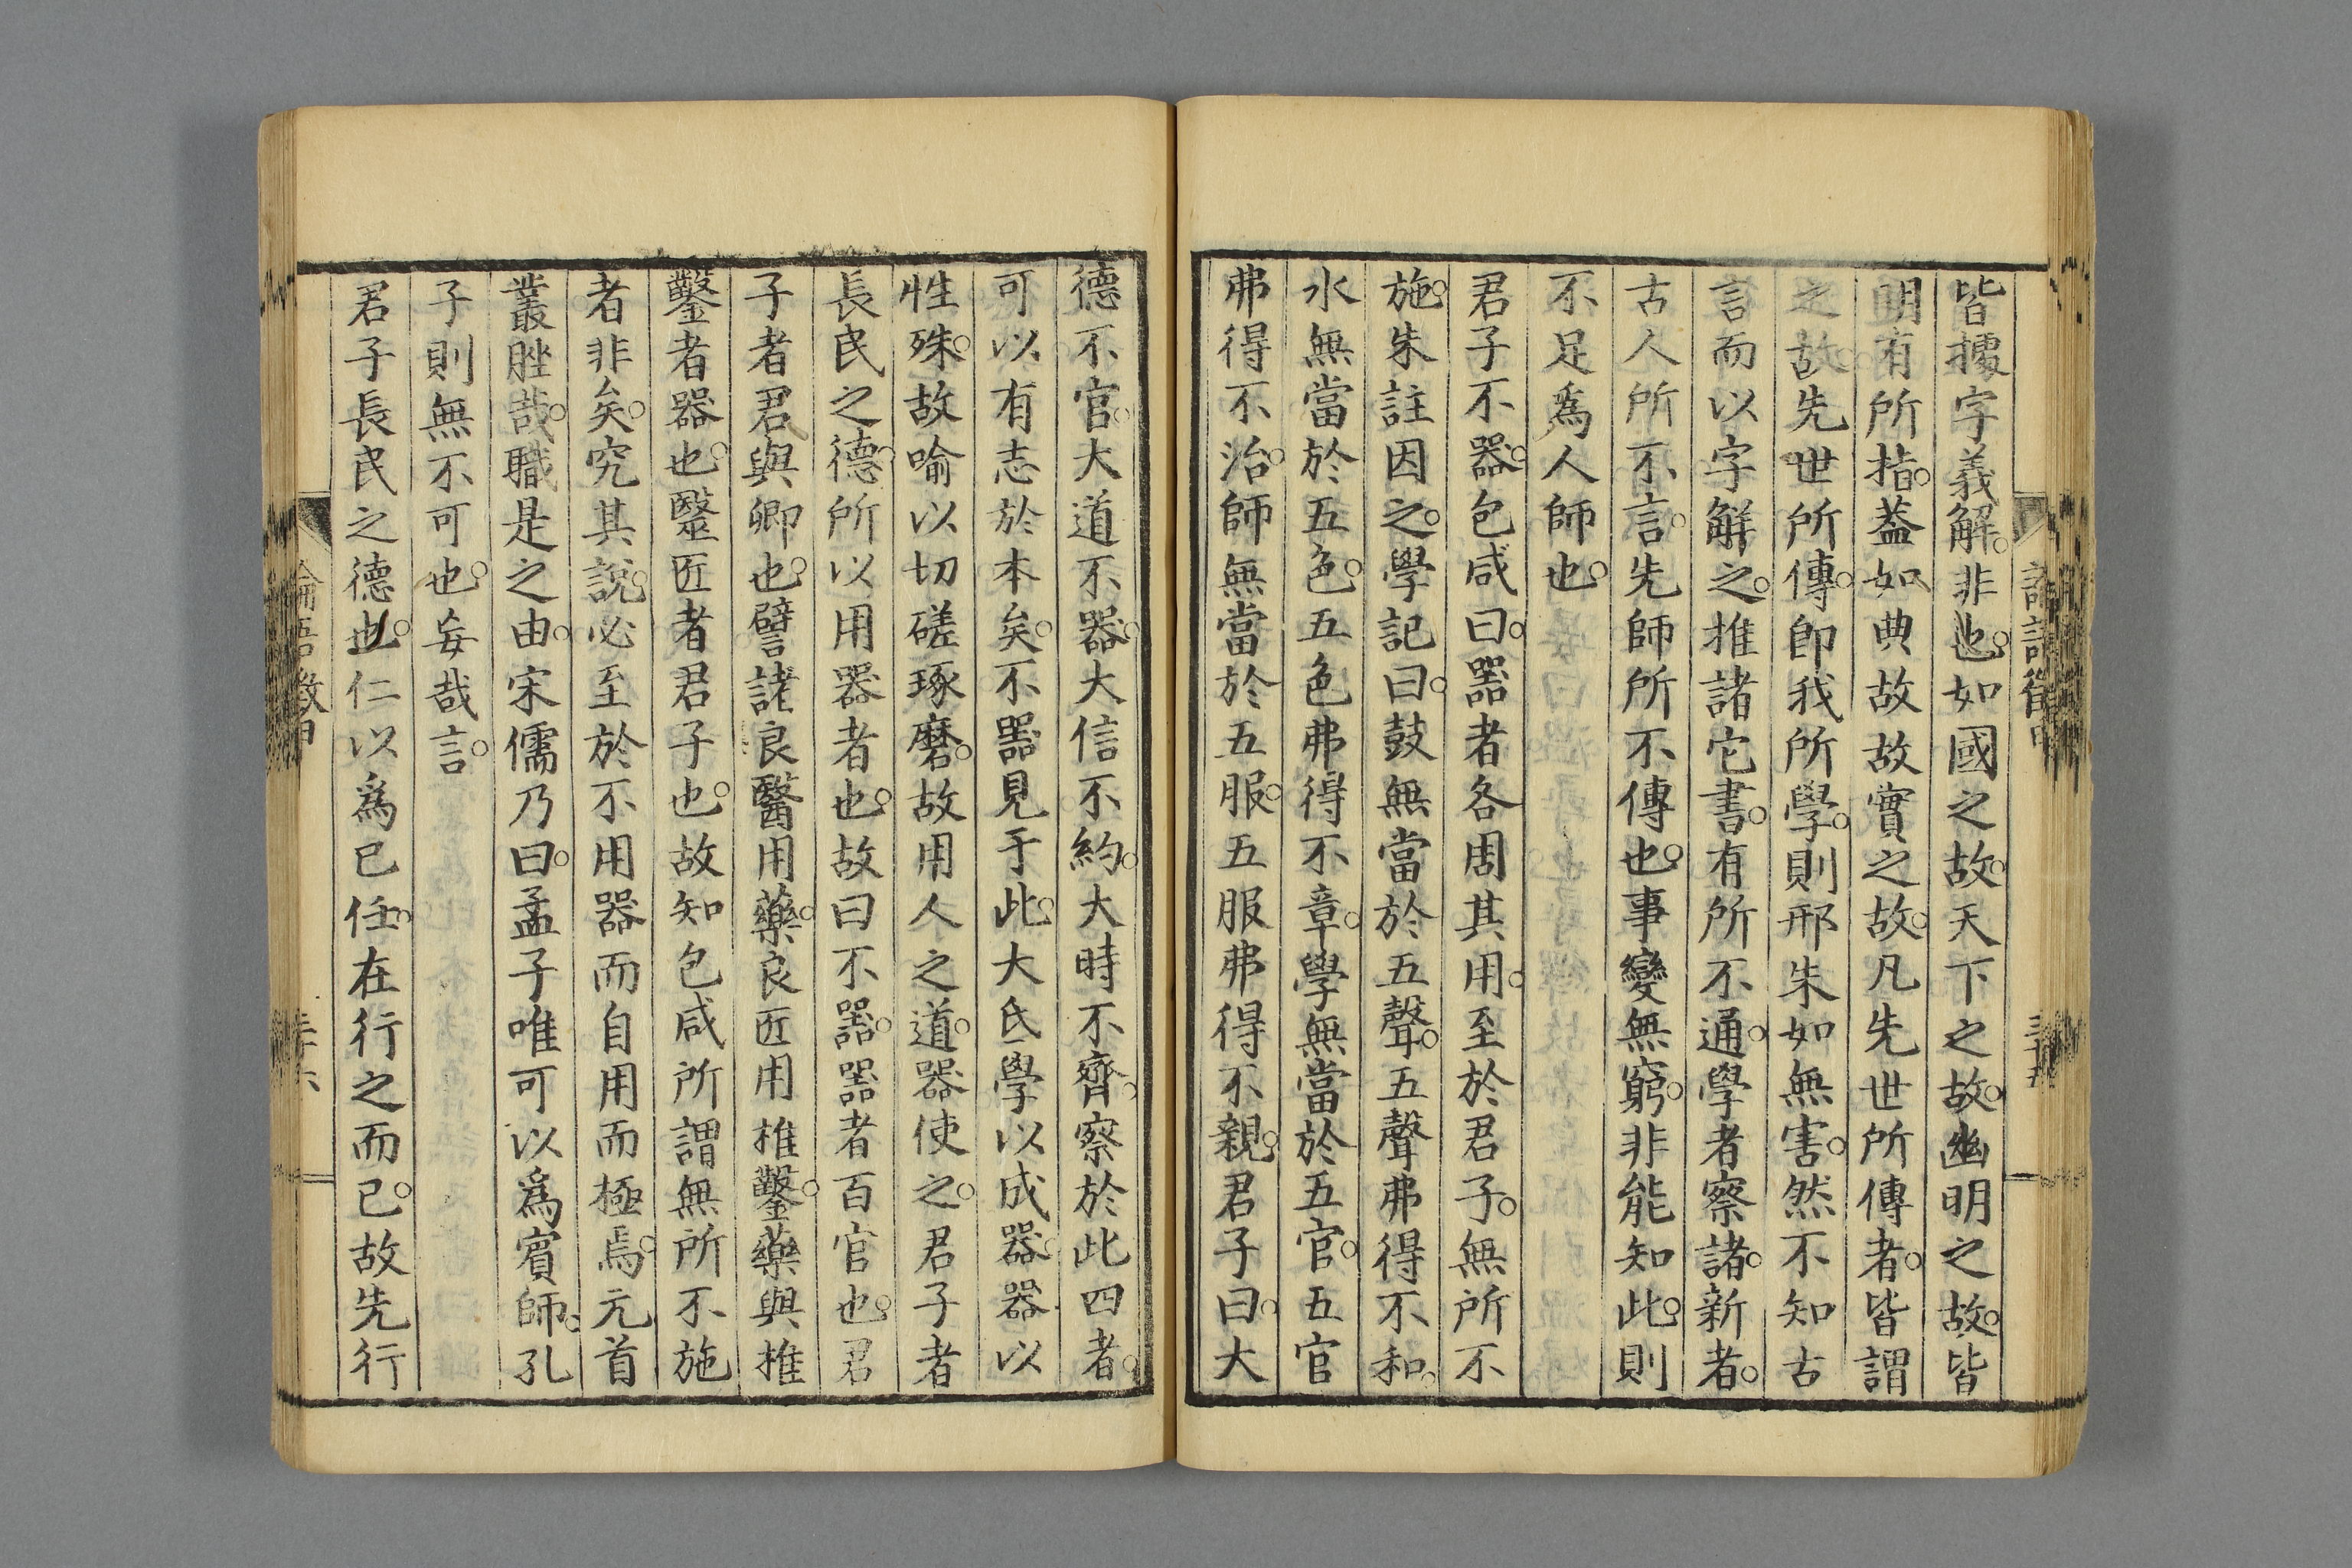 皆據字義解。非也。如國之故。天下之故。幽明之故。皆
明有所指。蓋如典故故實之故。凡先世所傳者。皆謂
之故。先世所傳。卽我所學。則邢朱如無害。然不知古
言而以字解之。推諸它書。有所不通。學者察諸。新者。
古人所不言。先師所不傳也。事變無窮。非能知此。則
不足爲人師也。
君子不器。包咸曰。器者各周其用。至於君子。無所不
施。朱註因之。學記曰。鼓無當於五聲。五聲弗得不和。
水無當於五色。五色弗得不章。學無當於五官。五官
弗得不治。師無當於五服。五服弗得不親。君子曰。大
德不官。大道不器。大信不約。大時不齊。察於此四者。
可以有志於本矣。不器見于此。大氐學以成器。器以
性殊。故喻以切磋琢磨。故用人之道。器使之。君子者
長民之德。所以用器者也。故曰不器。器者百官也。君
子者君與卿也。譬諸良醫用藥。良匠用椎鑿。藥與椎
鑿者器也。醫匠者君子也。故知包咸所謂無所不施
者非矣。究其說。必至於不用器而自用而極焉。元首
叢脞哉。職是之由。宋儒乃曰。孟子唯可以爲賓師。孔
子則無不可也。妄哉言。
君子長民之德也。仁以爲己任。在行之而已。故先行